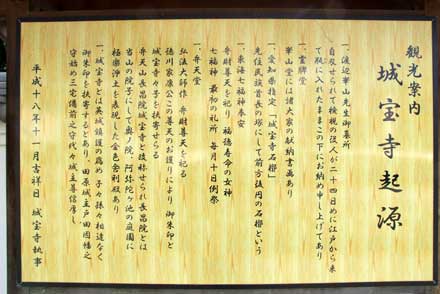 観光案内
城宝寺起源
一、渡辺崋山先生御墓所
自殺せられて検視の役人が二十四日めに江戸から来
て瓶に入れたままこの下にお納め申し上げてあり
一、霊牌堂
崋山堂には諸大家の献納書画あり
一、愛知県指定「城宝寺古墳」
先住民族酋長の塚にして前方後円の石槨という
一、東海七福神奉安
弁財尊天を祀り 福徳寿命の女神
七福神 最初の礼所 毎月十日例祭
一、弁天堂
弘法大師作 弁財尊天を祀る
徳川家康公この尊天のお護りにより 御朱印と
城宝寺々子を扶寄せらる
弁天山長昌院城宝寺と披称せられ長昌院とは
当山の院子にして奥の院、阿弥陀ヶ池の庭園に
極楽浄土を表現した金色舎利殿あり
一、城宝寺とは英城鎮護の為め子々孫々相違なく
御朱印を扶寄するとあり、田原城主戸田因幡之
守始め三宅備前之守代々城主尊信厚し
平成十八年十一月吉祥日 城宝寺執事